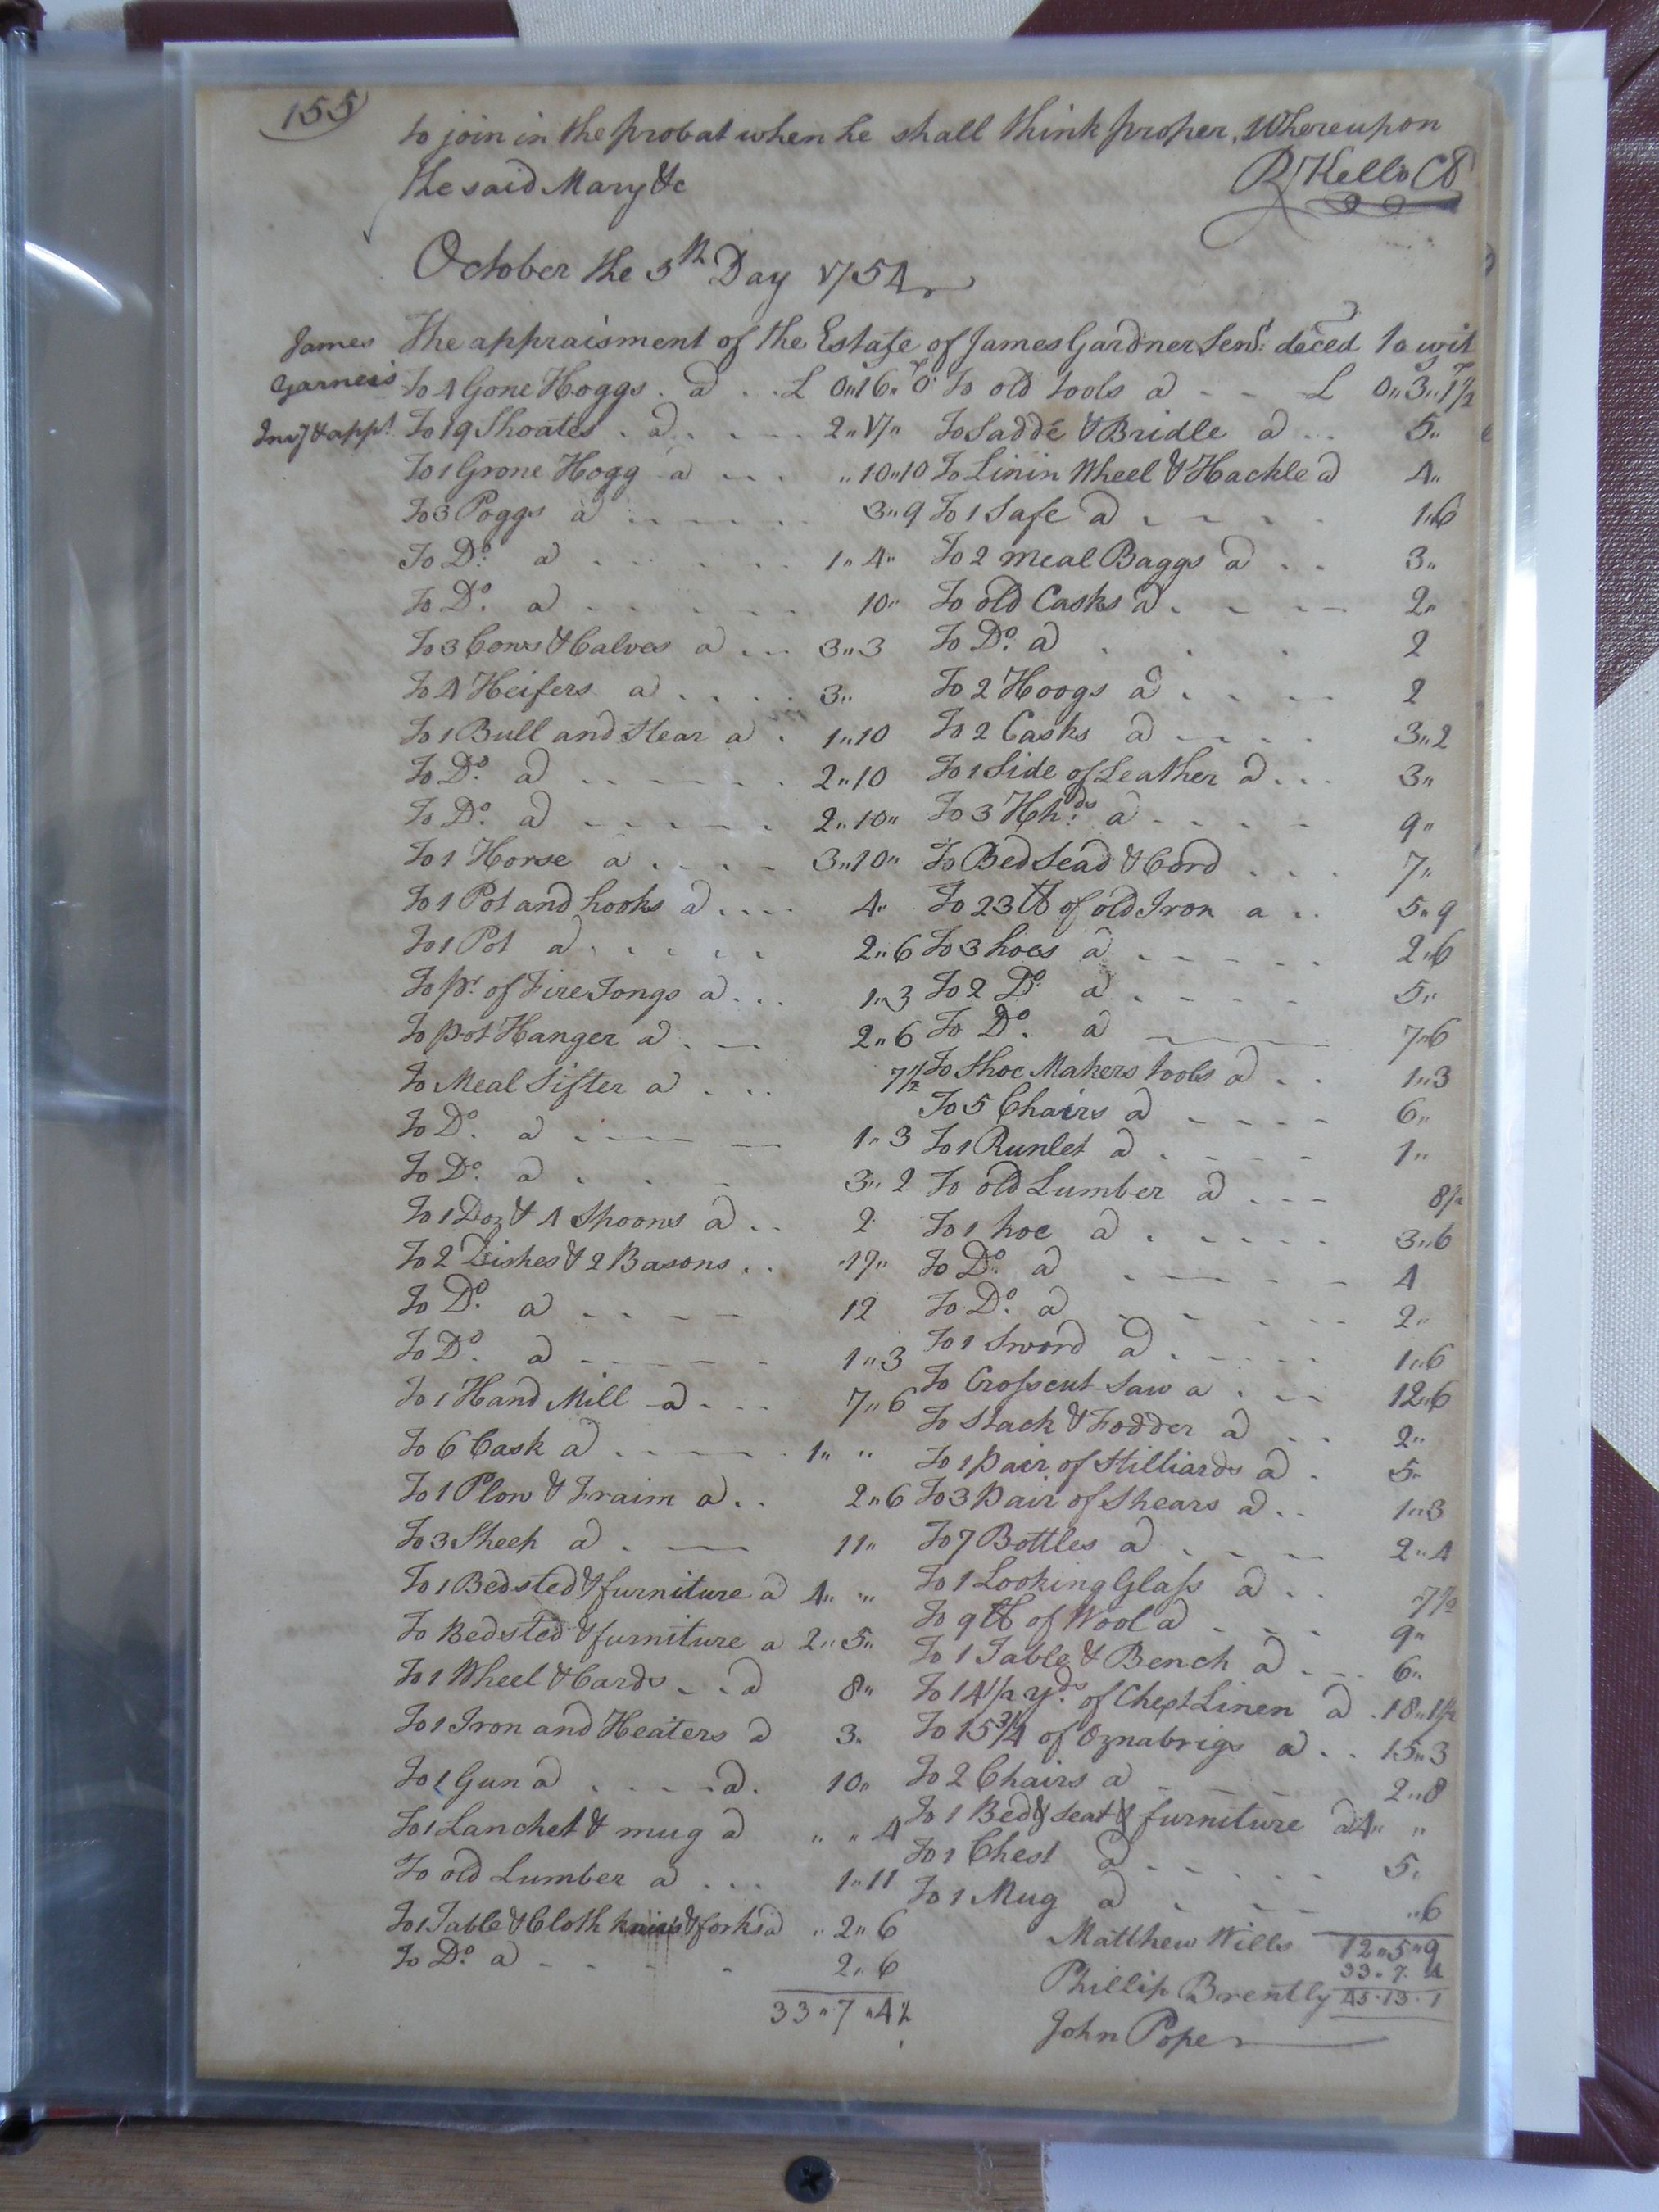 155
to join in the probat when he shall think proper, Whereupon
the said Mary &c
R Kello Cℓ
October the 5th Day 1754
James Garner's Invy & appt
The appraisment of the Estate of James Gardner Senr: deced to wit
To 4 Gone Hoggs . a . . £ 0"16"0
To 19 Shoates . a . . . . 2"17"
To 1 Grone Hogg a . . . "10"10
To 3 Poggs a . . . . . 3"9
To Do. a . . . . . . 1"4"
To Do. a . . . . . . 10"
To 3 Cows & Calves a . . . 3"3
To 4 Heifers a . . . . 3"
To 1 Bull and Stear a . 1"10
To Do. a . . . . . . 2"10
To Do. a . . . . . . 2"10"
To 1 Horse a . . . . 3"10"
To 1 Pot and hooks a . . . . 4"
To 1 Pot a . . . . . 2"6
To pr. of Fire Tongs a . . . 1"3
To pot Hanger a . — 2"6
To Meal Sifter a . . . 7½
To Do. a . — — — 1"3
To Do. a . . . 3"2
To 1 Doz & 4 Spoons a . . 2
To 2 Dishes & 2 Basons . . 17"
To Do. a . . . . 12
To Do. a . . . . . 1"3
To 1 Hand Mill a . . . 7"6
To 6 Cask a . . . . . 1" "
To 1 Plow & Fraim a . . 2"6
To 3 Sheep a . — 11"
To 1 Bedsted & furniture a 4" "
To Bedsted & furniture a 2"5"
To 1 Wheel & Cards . . a 8"
To 1 Iron and Heaters a 3"
To 1 Gun a . . . . a . 10"
To 1 Lanchet & mug a " " 4
To old Lumber a . . . 1"11
To 1 Table & Cloth knives & forks a " 2"6
To Do. a . . . . 2"6
33"7"4½
To old tools a . . £ 0"3"1½
To Saddle & Bridle a . . 5"
To Linin Wheel & Hackle a 4"
To 1 Safe a . . . . 1"6
To 2 meal Baggs a . . 3"
To old Casks a . . . . 2"
To Do. a . . . 2
To 2 Hoogs a . . . . 2
To 2 Casks a . . . . 3"2
To 1 Side of Leather a . . . 3"
To 3 Hhds. a . . . . 9"
To Bed Sead & Cord . . . 7"
To 23 ℔ of old Iron a . . 5"9
To 3 hoes a . . . . . 2"6
To 2 Do. a . . . . 5"
To Do. a — 7"6
To Shoe Makers tools a . . 1"3
To 5 Chairs a . . . . 6"
To 1 Runlet a . . . . 1"
To old Lumber a . . . 8½
To 1 hoe a . . . . . 3"6
To Do. a . . . . 4
To Do. a . . . . . 2"
To 1 Sword a . . . . 1"6
To Crosscut Saw a . . . 12"6
To Stack & Fodder a . . 2"
To 1 pair of Stilliards a . 5"
To 3 pair of Shears a . . 1"3
To 7 Bottles a . . . . 2"4
To 1 Looking Glass a . . 7½
To 9 ℔ of Wool a . . . 9"
To 1 Table & Bench a . . . 6"
To 14½ yds. of Chext Linen a . 18"1½
To 15¾ of Oznabrigs a . . 15"3
To 2 Chairs a . . . 2"8
To 1 Bed & Seat & furniture a 4" "
To 1 Chest a . . . . . 5"
To 1 Mug a . . . "6
12"5"9
33"7"4
45"13"1
Matthew Wills
Phillip Brently
John Pope